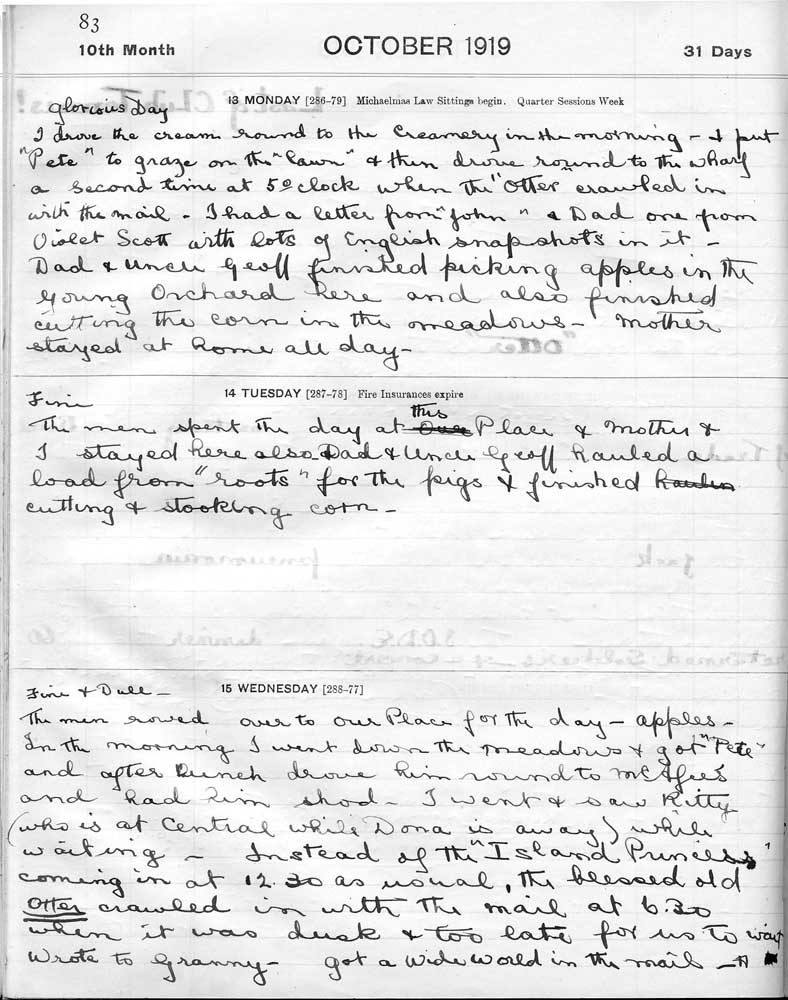 83
10th Month OCTOBER 1919 31 Days
13 MONDAY [286-79] Michaelmas Law Sittings begin. Quarter Sessions Week
Glorious Day
I drove the cream round to the Creamery in the morning – & put
"Pete" to graze on the "lawn" & then drove round to the wharf
a second time at 5 o'clock when the "Otter" crawled in
with the mail – I had a letter from "John" & Dad one from
Violet Scott with lots of English snapshots in it –
Dad & Uncle Geoff finished picking apples in the
Young Orchard here and also finished
cutting the corn in the meadows – Mother
stayed at home all day –
14 TUESDAY [287-78] Fire Insurances expire
Fine
The men spent the day at this Place & Mother &
I stayed here also Dad & Uncle Geoff hauled a
load from "roots" for the pigs & finished
cutting & stooking corn –
15 WEDNESDAY [288-77]
Fine & Dull –
The men rowed over to our Place for the day – apples –
In the morning I went down the meadows & got "Pete"
and after Lunch drove him round to McAfee's
and had him shod – I went & saw Kitty
(who is at Central while Dona is away) while
waiting – Instead of the "Island Princess"
coming in at 12.30 as usual, the blessed old
Otter crawled in with the mail at 6.30
when it was dusk & too late for us to wait
Wrote to Granny – got a Wide World in the mail –